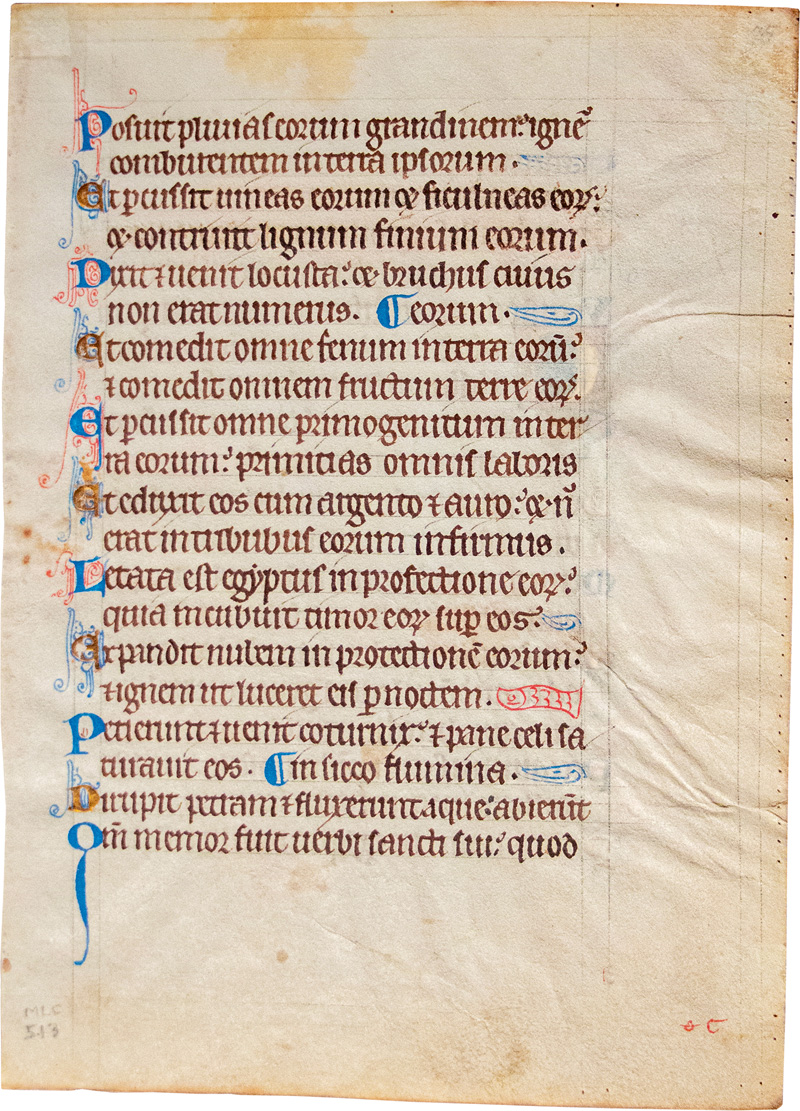 35
Posuit pluuias eorum grandinem: ignē
comburentem in terra ipsorum.
Et ꝑcussit uineas eorum ⁊ ficulneas eoꝝ:
⁊ contriuit lignum finium eorum.
Dixit ⁊ uenit locusta: ⁊ bruchus cuius
non erat numerus. ¶ eorum.
Et comedit omne fenum in terra eorū:
⁊ comedit omnem fructum terre eoꝝ.
Et ꝑcussit omne primogenitum in ter
ra eorum: primitias omnis laboris
Et eduxit eos cum argento ⁊ auro: ⁊ nō
erat in tribubus eorum infirmus.
Letata est egyptus in profectione eoꝝ:
quia incubuit timor eoꝝ suꝑ eos:
Expandit nubem in protectionē eorum:
⁊ ignem ut luceret eis ꝑ noctem.
Petierunt ⁊ uenit coturnix: ⁊ pane celi sa
turauit eos. ¶ in sicco flumina.
Dirupit petram ⁊ fluxerunt aque: abierūt
Qm̄ memor fuit uerbi sancti sui: quod
MLC
513